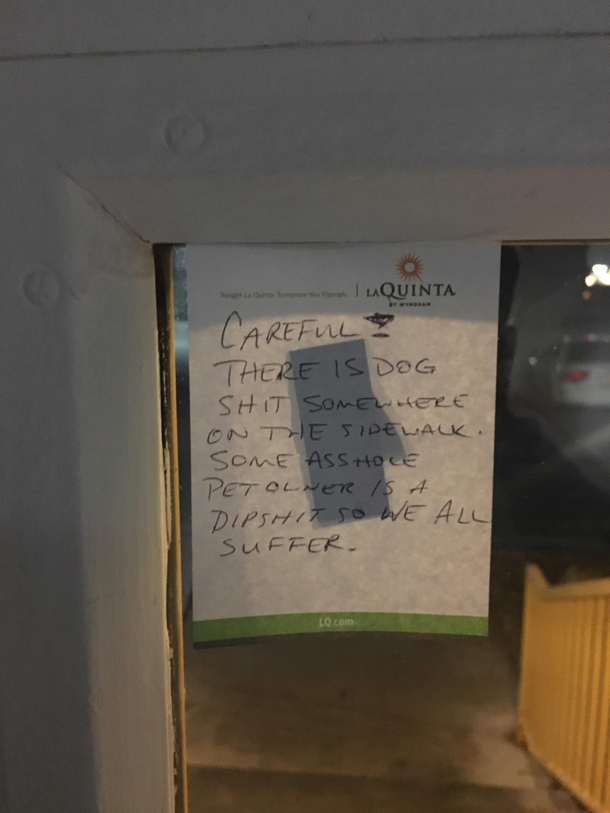 Tonight La Quinta. Tomorrow You Triumph.
LAQUINTA
BY WYNDHAM
CAREFUL!
THERE IS DOG
SHIT SOMEWHERE
ON THE SIDEWALK.
SOME ASSHOLE
PET OWNER IS A
DIPSHIT SO WE ALL
SUFFER.
LQ.com